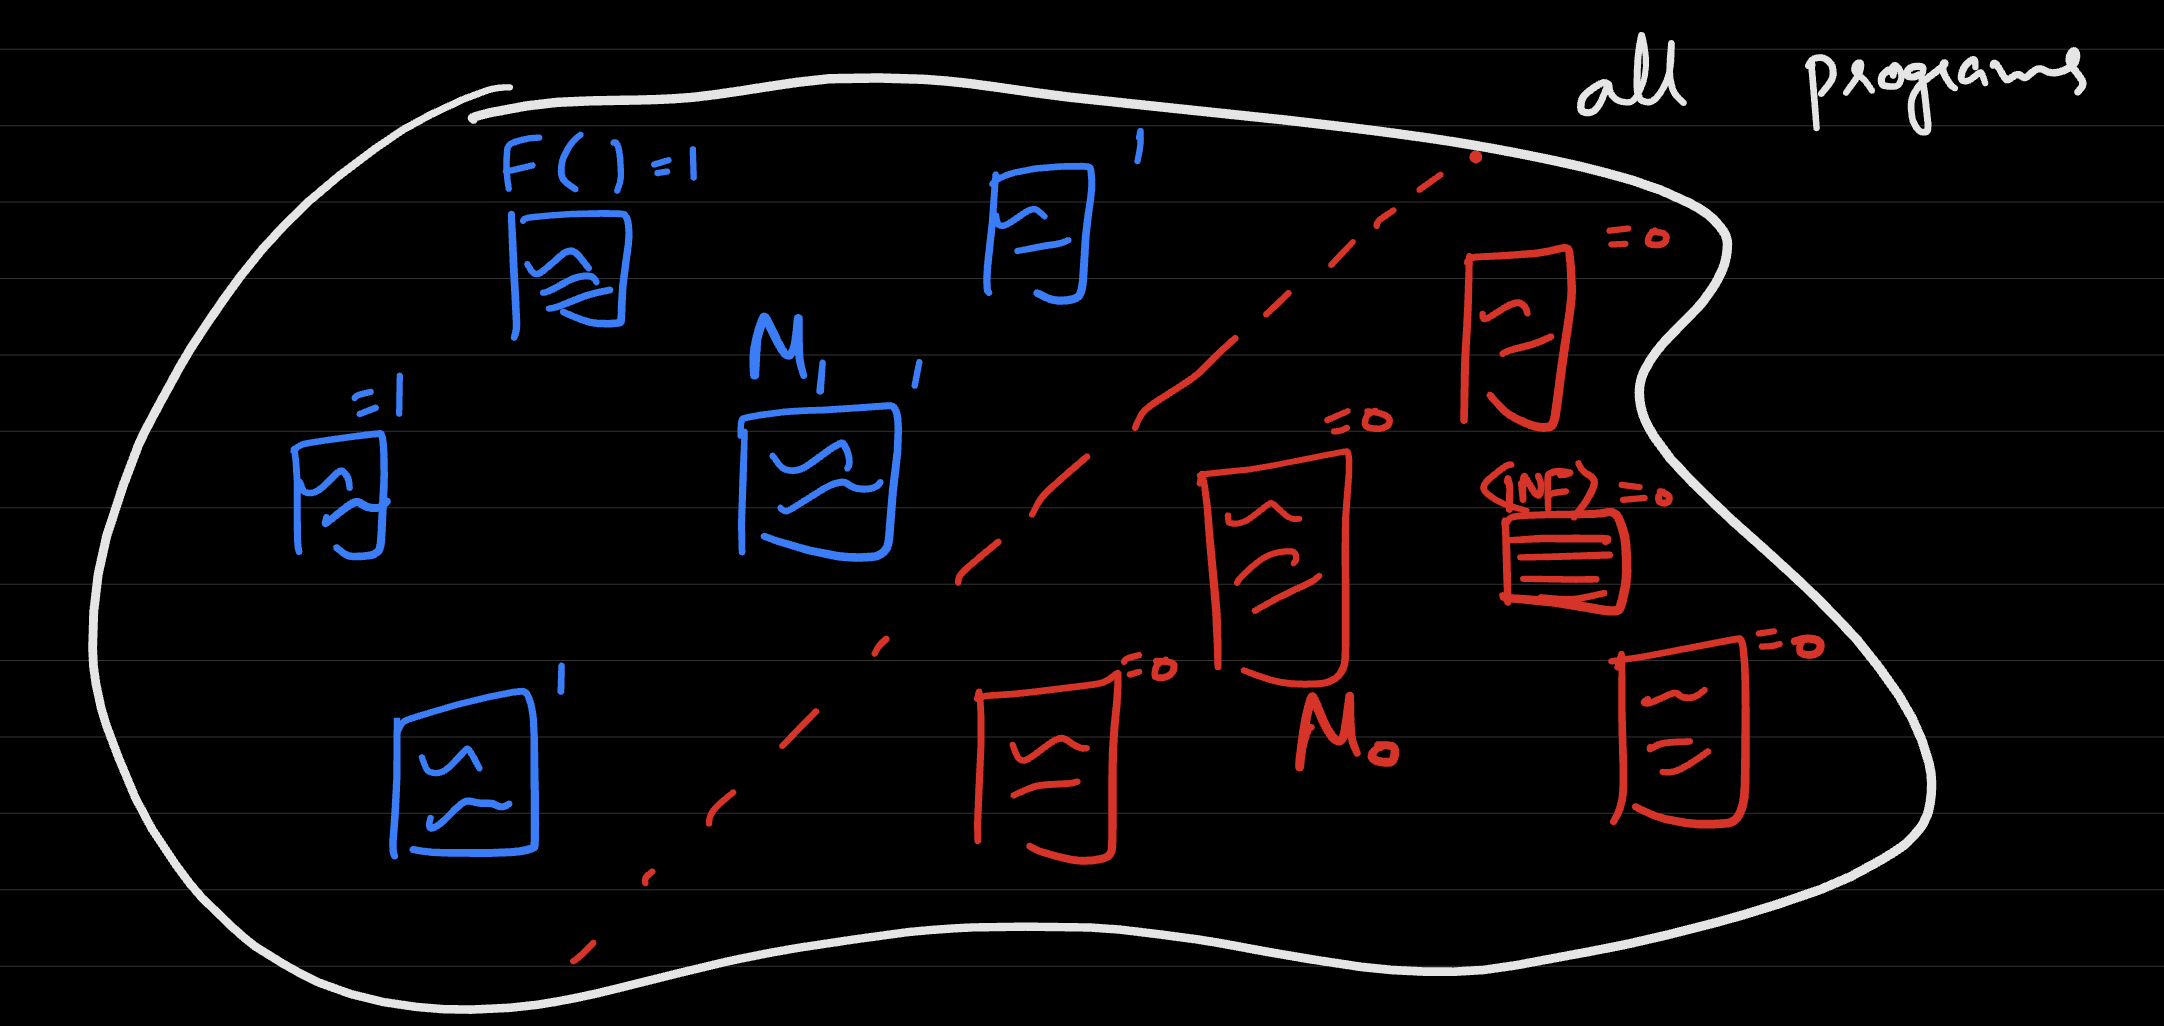 all programs
F( ) = 1
1
= 0
M1
= 1
1
= 0
(INF) = 0
1
= 0
= 0
M0